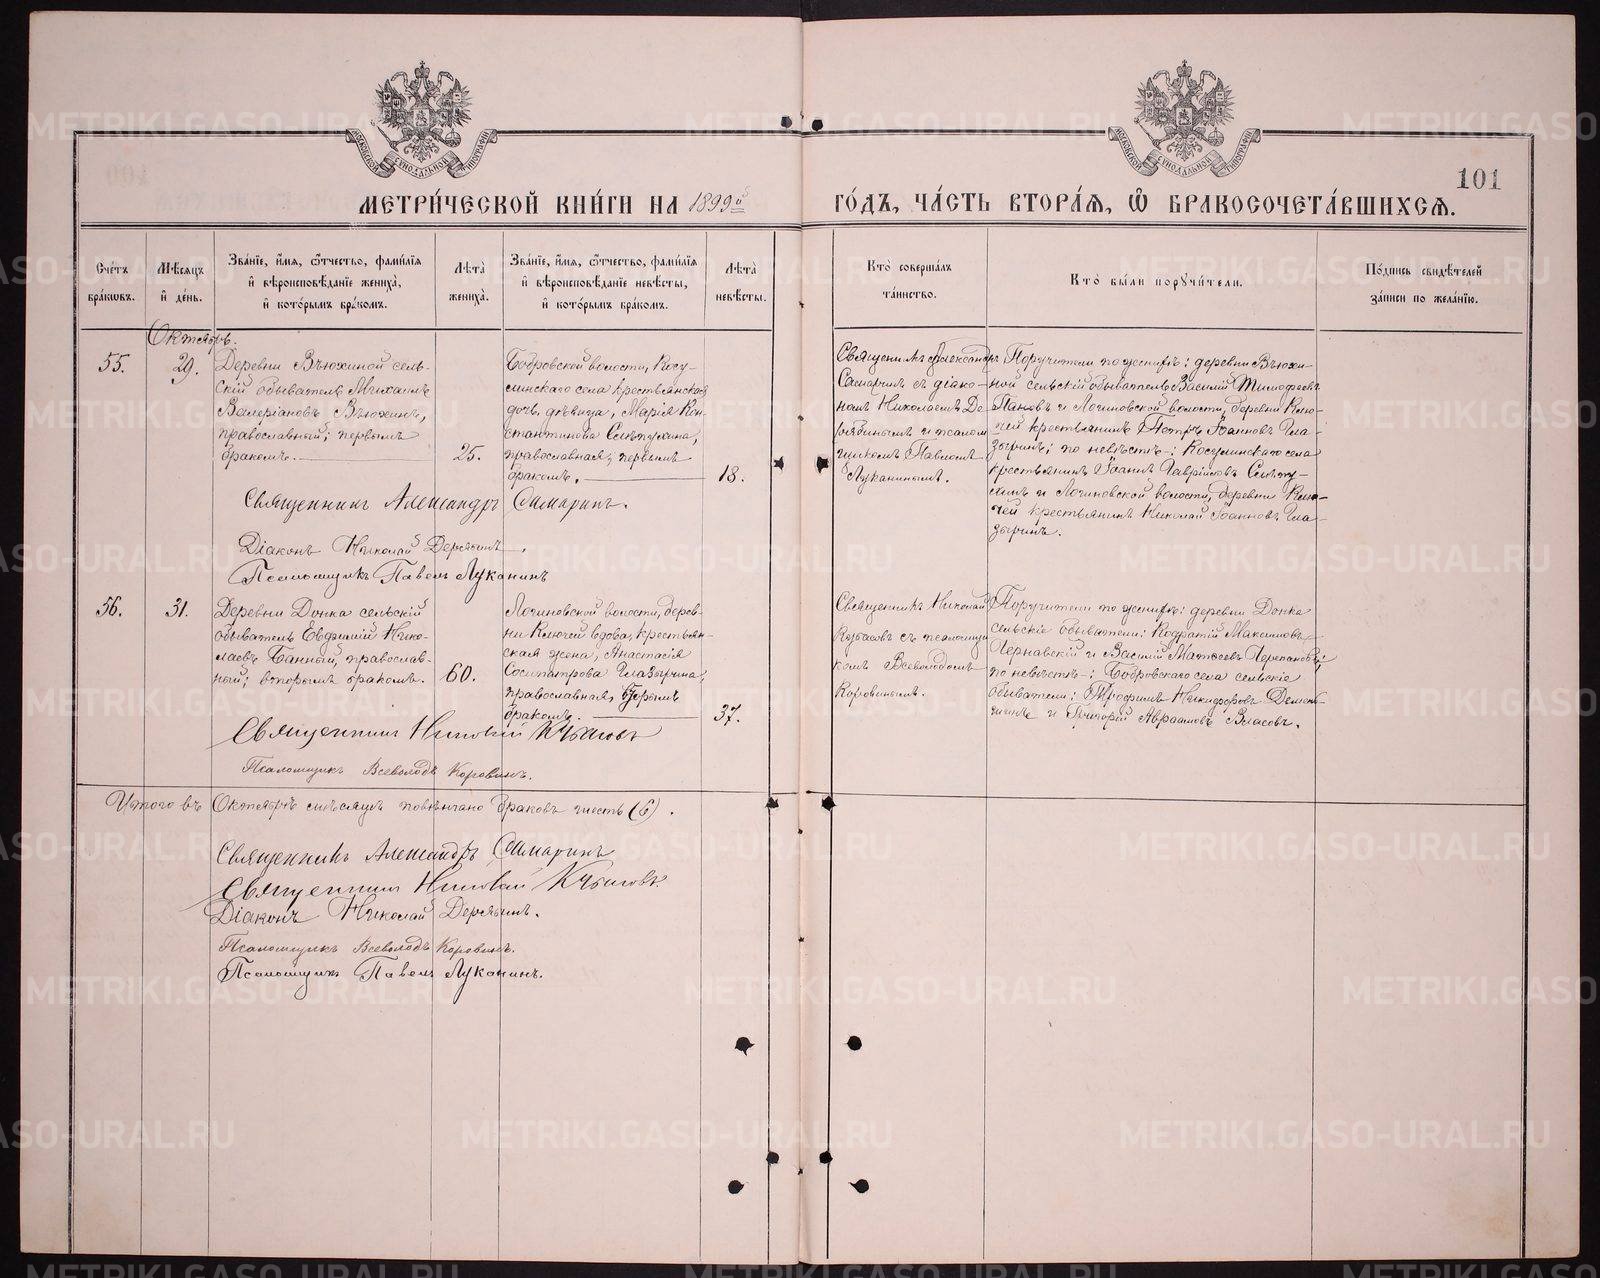 МЕТРИ́ЧЕСКОЙ КНИ́ГИ НА 1899й
ГО́ДЪ, ЧА́СТЬ ВТОРА́Я, Ѡ҆ БРАКОСОЧЕТА́ВШИХСЯ.
101
МОСКОВСКОЙ СѴНОДАЛЬНОЙ ТИПОГРАФІИ
МОСКОВСКОЙ СѴНОДАЛЬНОЙ ТИПОГРАФІИ
Сче́тъ
бра́ковъ.
Мѣ́сяцъ
и҆ де́нь.
Зва́нїе, и҆́мя, ѻ҆́тчество, фами́лїя
и҆ вѣроисповѣ́данїе жениха̀,
и҆ кото́рымъ бра́комъ.
Лѣта̀
жениха̀.
Зва́нїе, и҆́мя, ѻ҆́тчество, фами́лїя
и҆ вѣроисповѣ́данїе невѣ́сты,
и҆ кото́рымъ бра́комъ.
Лѣта̀
невѣ́сты.
Кто̀ соверша́лъ
та́инство.
Кто̀ бы́ли порꙋчи́тели.
По́дпись свидѣ́телей
за́писи по жела́нїю.
Октябрь.
55.
29.
Деревни Вьюхиной сель-
скій обыватель Михаилъ
Валеріановъ Вьюхинъ,
православный; первымъ
бракомъ.
25.
Бобровской волости, Косу-
линскаго села крестьянская
дочь, дѣвица, Марія Кон-
стантинова Слѣпухина,
православная, первымъ
бракомъ.
18.
Священникъ Александръ
Самаринъ съ діако-
номъ Николаемъ Де-
рябинымъ и псалом-
щикомъ Павломъ
Луканинымъ.
Поручители по женихѣ: деревни Вьюхи-
ной сельскій обыватель Василій Тимофеевъ
Пановъ и Логиновской волости, деревни Клю-
чей крестьянинъ Петръ Іоанновъ Гла-
зыринъ; по невѣстѣ: Косулинскаго села
крестьянинъ Іоаннъ Гавріиловъ Слѣпу-
хинъ и Логиновской волости, деревни Клю-
чей крестьянинъ Николай Іоанновъ Гла-
зыринъ.
Священникъ Александръ Самаринъ.
Діаконъ Николай Дерябинъ.
Псаломщикъ Павелъ Луканинъ
56.
31.
Деревни Донка сельскій
обыватель Евфимій Нико-
лаевъ Банный, православ-
ный; вторымъ бракомъ.
60.
Логиновской волости, дерев-
ни Ключей вдова, крестьян-
ская жена, Анастасія
Сосипатрова Глазырина,
православная, вторымъ
бракомъ.
37.
Священникъ Николай
съ псаломщи-
комъ Всеволодомъ
Коровинымъ.
Поручители по женихѣ: деревни Донка
сельскіе обыватели: Кодратій Максимовъ
Чернавскій и Василій Матѳеевъ Черепановъ;
по невѣстѣ: Бобровскаго села сельскіе
обыватели: Трофимъ Никифоровъ Демень-
шинъ и Григорій Авраамовъ Власовъ.
Священникъ Николай
Псаломщикъ Всеволодъ Коровинъ.
Итого въ Октябрѣ мѣсяцѣ повѣнчано браковъ шесть (6).
Священникъ Александръ Самаринъ
Священникъ Николай
Діаконъ Николай Дерябинъ.
Псаломщикъ Всеволодъ Коровинъ.
Псаломщикъ Павелъ Луканинъ.
METRIKI.GASO-URAL.RU